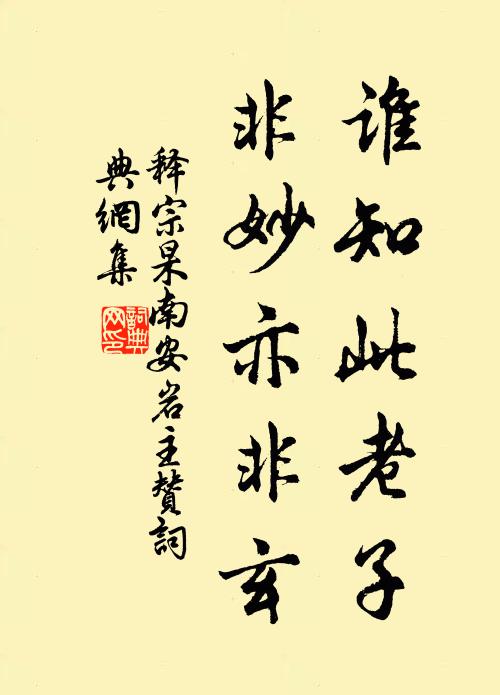 谁知此老子
非妙亦非玄
释宗杲南安岩主赞词
典網集
詞典网印